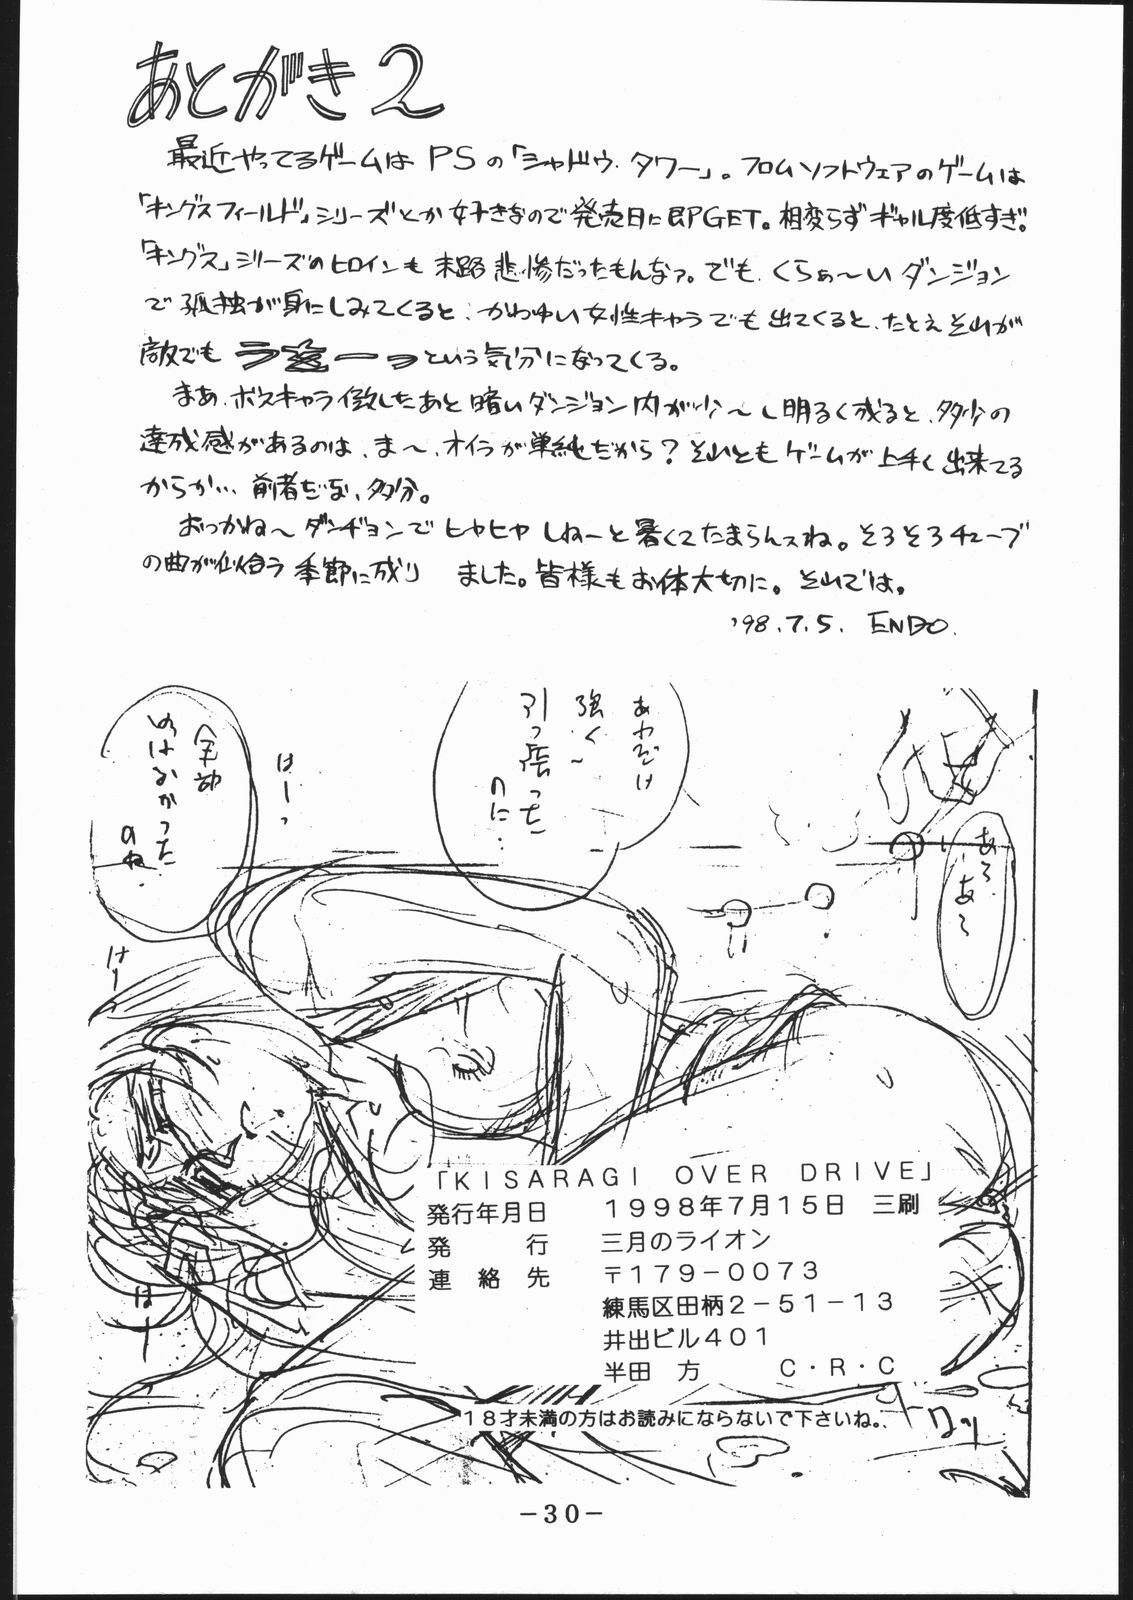 あとがき2
最近やってるゲームはPSの「シャドウ.タワー」。フロムソフトウェアのゲームは
「キングスフィールド」シリーズとか好きなので発売日に即PGET。相変らずギャル度低すぎ。
「キングス」シリーズのヒロインも末路悲惨だったもんなァ。でも、くらぁ〜いダンジョン
で孤独が身にしみてくると、かわゆい女性キャラでも出てくると、たとえそれが
敵でも という気分になってくる。
まあ、ボスキャラ倒したあと暗いダンジョン内が少〜し明るく成ると、多少の
達成感があるのは、ま〜、オイラが単純だから？それともゲームが上手く出来てる
からか… 前者だな、多分。
おっかね〜ダンヂョンでヒヤヒヤしねーと暑くてたまらんスね。そろそろチューブ
の曲が似合う季節に成り ました。皆様もお体大切に。それでは。
'98.7.5. ENDO.
あれだけ
強く〜
引っ張った
のに…
はーっ
全部
のね.
あら
あ〜
はー
「KISARAGI OVER DRIVE」
発行年月日 1998年7月15日 三刷
発行 三月のライオン
連絡先 〒179-0073
練馬区田柄2-51-13
井出ビル401
半田 方 C・R・C
18才未満の方はお読みにならないで下さいね。
-30-